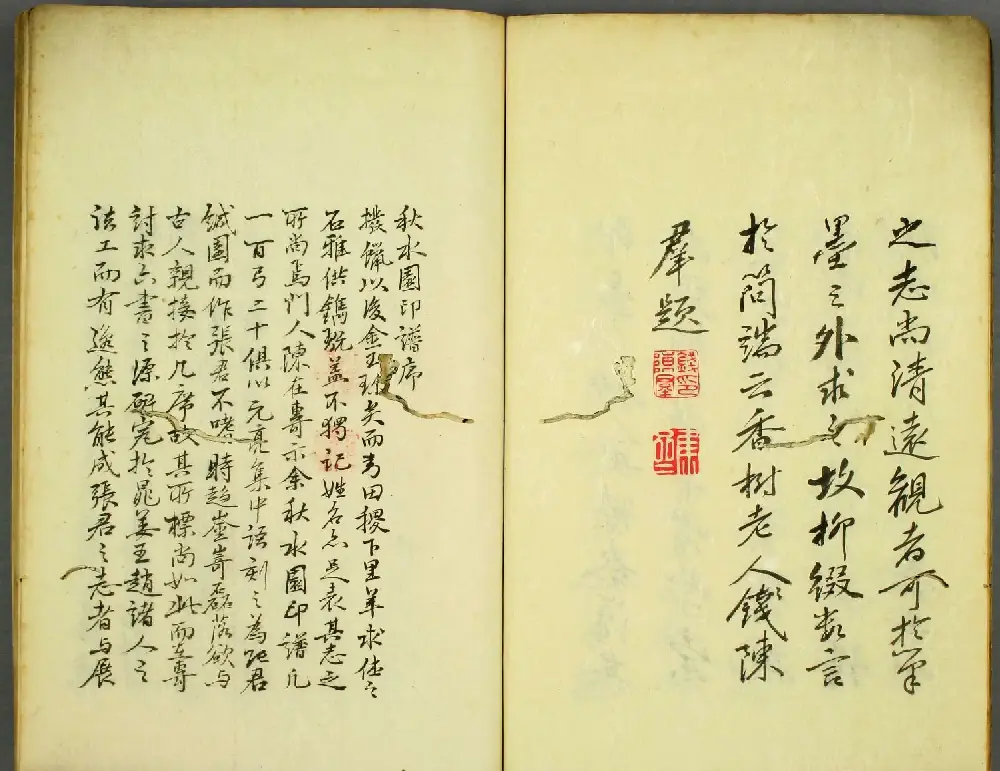 之志尚清遠觀者可於筆
墨之外求之故聊綴數言
於簡端云香樹老人錢陳
羣題
錢印陳羣
秋水園印譜序
撥蠟以後金玉矣而青田稷下里羊求休之
石雅供鐫翫蓋不獨記姓名亦足表其志之
所尚焉門人陳在專示余秋水園印譜凡
一百有二十俱以元亮集中語刻之為張君
鍼園而作張君不嗜時趨崟崎磊落欲與
古人親接於几席故其所標尚如此而在專
討求六書之源研究於晁姜王趙諸人之
法工而有逸態其能成張君之志者與展